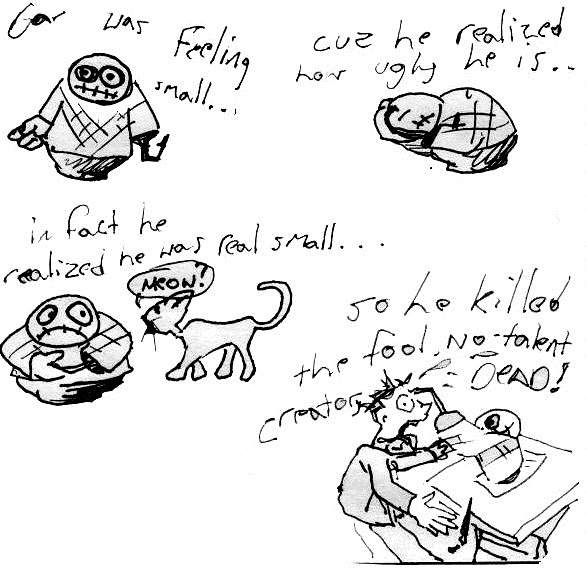 Gar was Feeling
small...
cuz he realized
how ugly he is..
in fact he
realized he was real small...
MEOW?
so he killed
the fool, no-talent
creator.
DEAD!